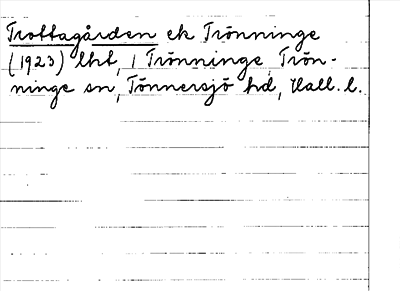 Trottagården ek Trönninge
(1923) lht, 1 Trönninge, Trön-
ninge sn, Tönnersjö hd, Hall. l.